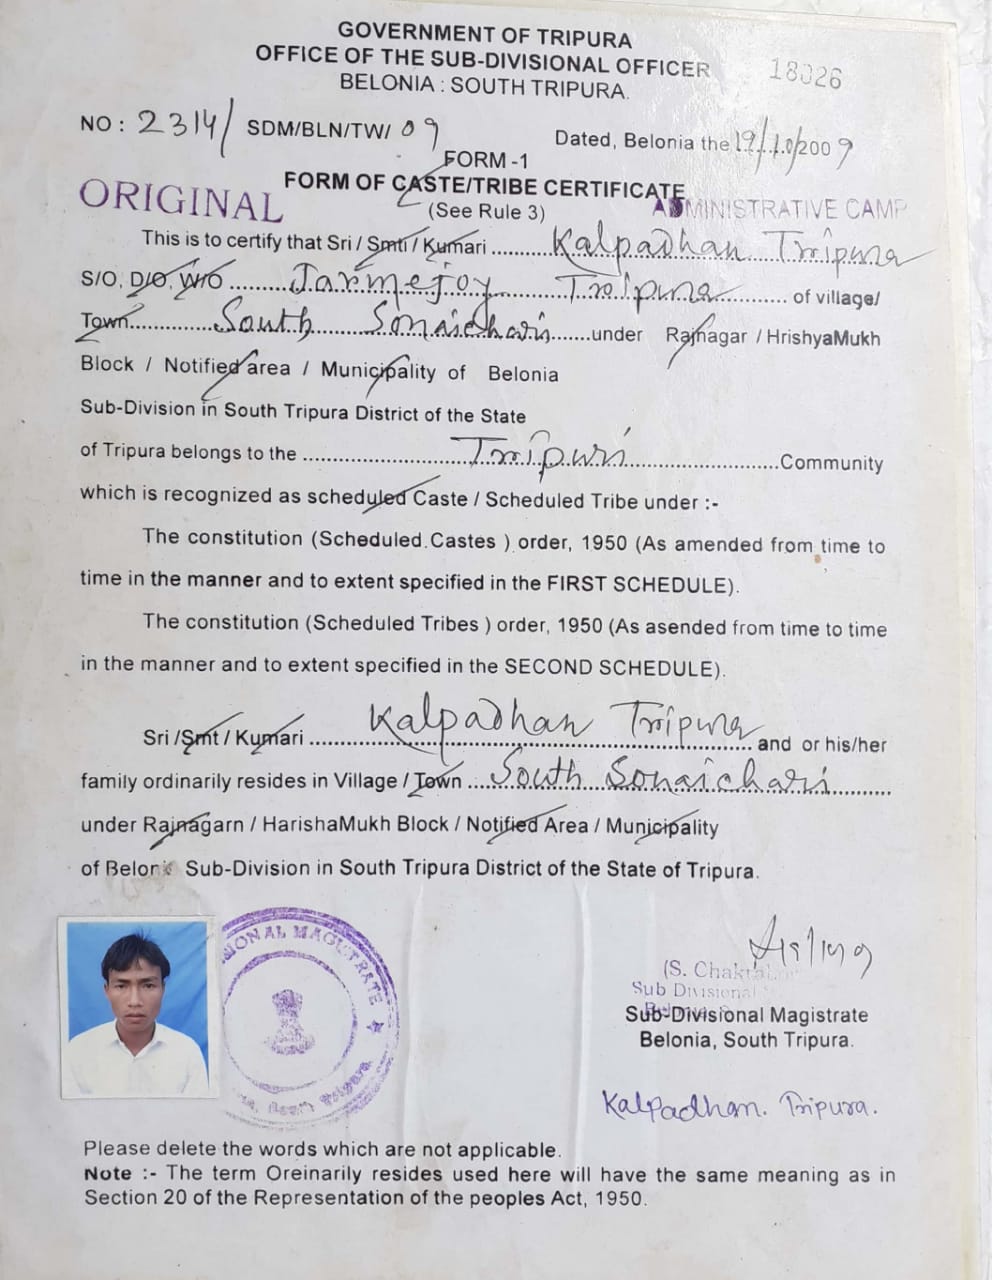 GOVERNMENT OF TRIPURA
OFFICE OF THE SUB-DIVISIONAL OFFICER
18026
BELONIA : SOUTH TRIPURA.
NO : 2314/ SDM/BLN/TW/ 09
Dated, Belonia the 19/10/2009
FORM -1
FORM OF CASTE/TRIBE CERTIFICATE
ORIGINAL
(See Rule 3)
ADMINISTRATIVE CAMP
This is to certify that Sri / Smti / Kumari .......... Kalpadhan Tripura
S/O, D/O, W/O .......... Jarmejoy Tripura .......... of village/
Town.......... South Sonaichari ..........under Rajnagar / HrishyaMukh
Block / Notified area / Municipality of Belonia
Sub-Division in South Tripura District of the State
of Tripura belongs to the .......... Tripuri ..........Community
which is recognized as scheduled Caste / Scheduled Tribe under :-
The constitution (Scheduled.Castes ) order, 1950 (As amended from time to
time in the manner and to extent specified in the FIRST SCHEDULE).
The constitution (Scheduled Tribes ) order, 1950 (As asended from time to time
in the manner and to extent specified in the SECOND SCHEDULE).
Sri /Smt / Kumari .......... Kalpadhan Tripura .......... and or his/her
family ordinarily resides in Village / Town .......... South Sonaichari ..........
under Rajnagarn / HarishaMukh Block / Notified Area / Municipality
of Beloni Sub-Division in South Tripura District of the State of Tripura.
IONAL MAGISTRATE
South Tripura
(S. Chak
Sub Divisional
Sub-Divisional Magistrate
Belonia, South Tripura.
Kalpadham. Tripura.
Please delete the words which are not applicable.
Note :- The term Oreinarily resides used here will have the same meaning as in
Section 20 of the Representation of the peoples Act, 1950.